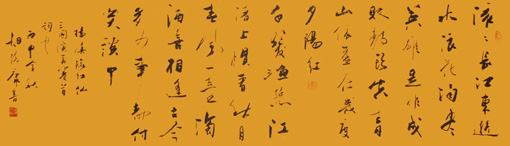 滚〻长江東逝
水浪花淘尽
英雄是非成
败转头空青
山依旧在几度
夕陽红
白发渔樵江
渚上惯看秋月
春風一壶浊
酒喜相逢古今
多少事都付
笑谈中
杨慎临江仙
三国演义卷首
词也
丙申年秋